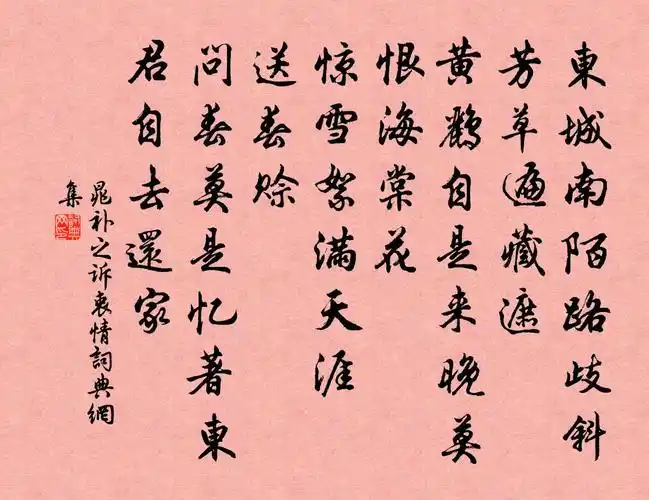 東城南陌路歧斜
芳草遍藏遮
黄鹂自是来晚莫
恨海棠花
惊雪絮满天涯
送春赊
问春莫是忆著東
君自去還家
晁补之诉衷情詞典網
集